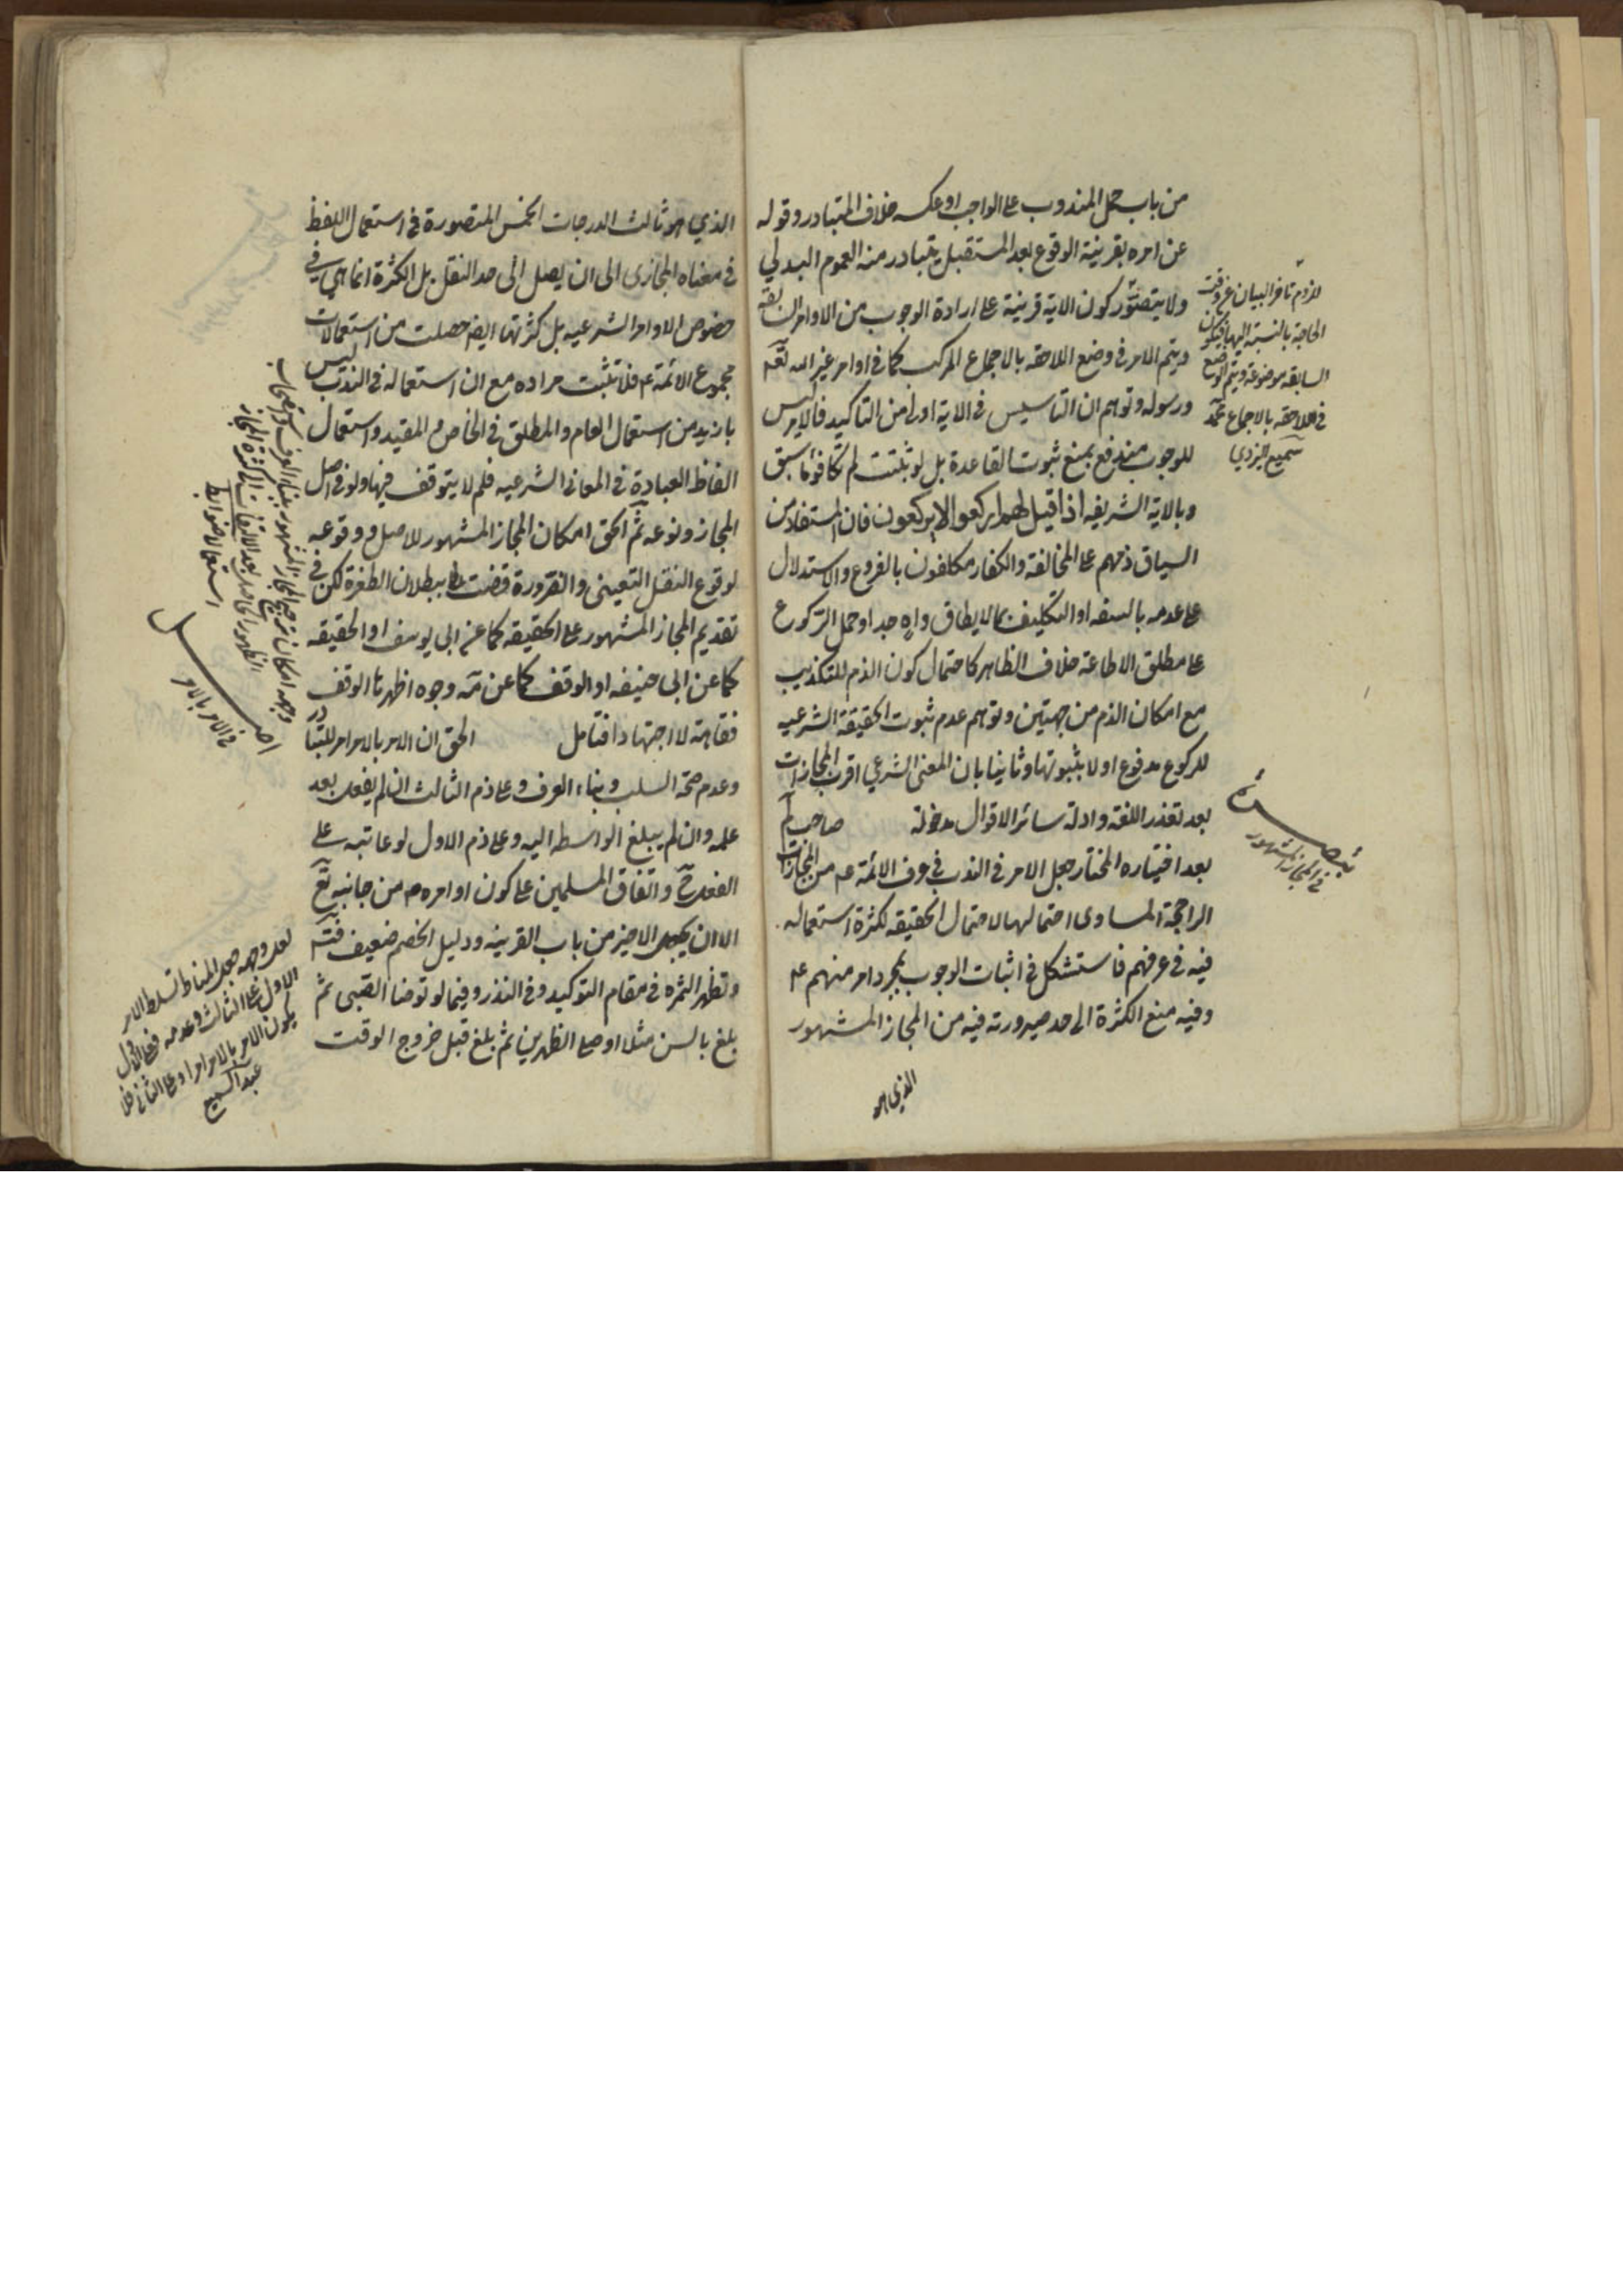 من باب حمل المندوب على الواجب او عكسه خلاف المتبادر وقوله
عن امره بقرينة الوقوع بعد المستقبل يتبادر منه العموم البدلي
ولا يتصور كون الاية قرينة على ارادة الوجوب من الاوامر السابقه
ويتم الامر في وضع اللاحقه بالاجماع المركب كما في اوامر غير الله تعم
ورسوله وتوهم ان التاسيس في الاية اولى من التاكيد فالامر ليس
للوجوب مندفع بمنع ثبوت القاعدة بل لو ثبتت لم تكافؤ ما سبق
وبالاية الشريفه اذا قيل لهم اركعوا لا يركعون فان المستفاد من
السياق ذمهم على المخالفة والكفار مكلفون بالفروع والاستدلال
على عدمه بالسفه او التكليف بما لا يطاق واه جدا وحمل الركوع
على مطلق الاطاعة خلاف الظاهر كاحتمال كون الذم للتكذيب
مع امكان الذم من جهتين وتوهم عدم ثبوت الحقيقة الشرعيه
للركوع مدفوع اولا بثبوتها وثانيا بان المعنى الشرعي اقرب المجازات
بعد تعذر اللغة وادلة سائر الاقوال مدخولة صاحب لم
بعد اختياره المختار جعل الامر في الندب في عرف الائمة عم من المجازات
الراجحة المساوى احتمالها لاحتمال الحقيقه لكثرة استعماله
فيه في عرفهم فاستشكل في اثبات الوجوب بمجرد امر منهم عم
وفيه منع الكثرة الى حد صيرورته فيه من المجاز المشهور
الذي هو
لزوم تاخر البيان عن وقت
الحاجة بالنسبة اليها فيكون
السابقه موضوعة ويتم الوضع
في اللاحقه بالاجماع محمد
سميع يزدي
تبصرة
في المجاز المشهور
الذي هو ثالث الدرجات الخمس المتصورة في استعمال اللفظ
في معناه المجازى الى ان يصل الى حد النقل بل الكثرة انما هي في
خصوص الاوامر الشرعيه بل كثرتها ايضا حصلت من استعمالات
مجموع الائمة عم فلا تثبت مراده مع ان استعماله في الندب ليس
بازيد من استعمال العام والمطلق في الخاص والمقيد واستعمال
الفاظ العبادة في المعاني الشرعيه فلم لا يتوقف فيها ولو في اصل
المجاز ونوعه ثم الحق امكان المجاز المشهور للاصل ووقوعه
لوقوع النقل التعينى والضرورة قضت ببطلان الطفرة لكن في
تقديم المجاز المشهور على الحقيقه كما عن ابى يوسف او الحقيقه
كما عن ابى حنيفه او الوقف كما عن ثمه وجوه اظهرها الوقف
فقاهة لا اجتهادا فتامل الحق ان الامر بالامر امر للتبادر
وعدم صحة السلب وبناء العرف وعلى ذم الثالث ان لم يفعل بعد
علمه وان لم يبلغ الواسطه اليه وعلى ذم الاول لو عاتبه على
الفعل ح واتفاق المسلمين على كون اوامره ص من جانبه تع
الا ان يجعل الاخير من باب القرينه ودليل الخصم ضعيف
وتظهر الثمره في مقام التوكيد وفي النذر وفيما لو توضا الصبى ثم
بلغ بالسن مثلا او صلى الظهرين ثم بلغ قبل خروج الوقت
وجه امكان ترجيح المجاز المشهور بناء العرف
الظهور الحاصل بعد الالتفات الى كثرة المجاز
استعمالا ضوابط
اصل
في الامر بالامر
لعل وجهه جعل المناط تسلط الامر
الاول على الثالث وعدمه فعلى الاول
يكون الامر بالامر امرا وعلى الثاني فلا
عبد السميع